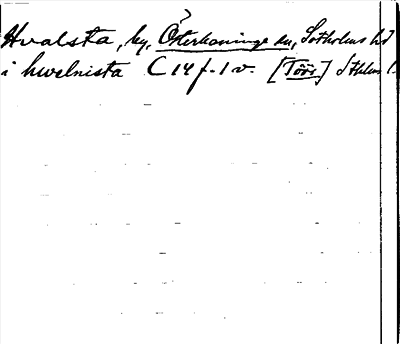 Hvalsta, by, Österhaninge sn, Sotholms hd
i hwelnista C 14 f. 1 v. [Töör] Sthlms l.